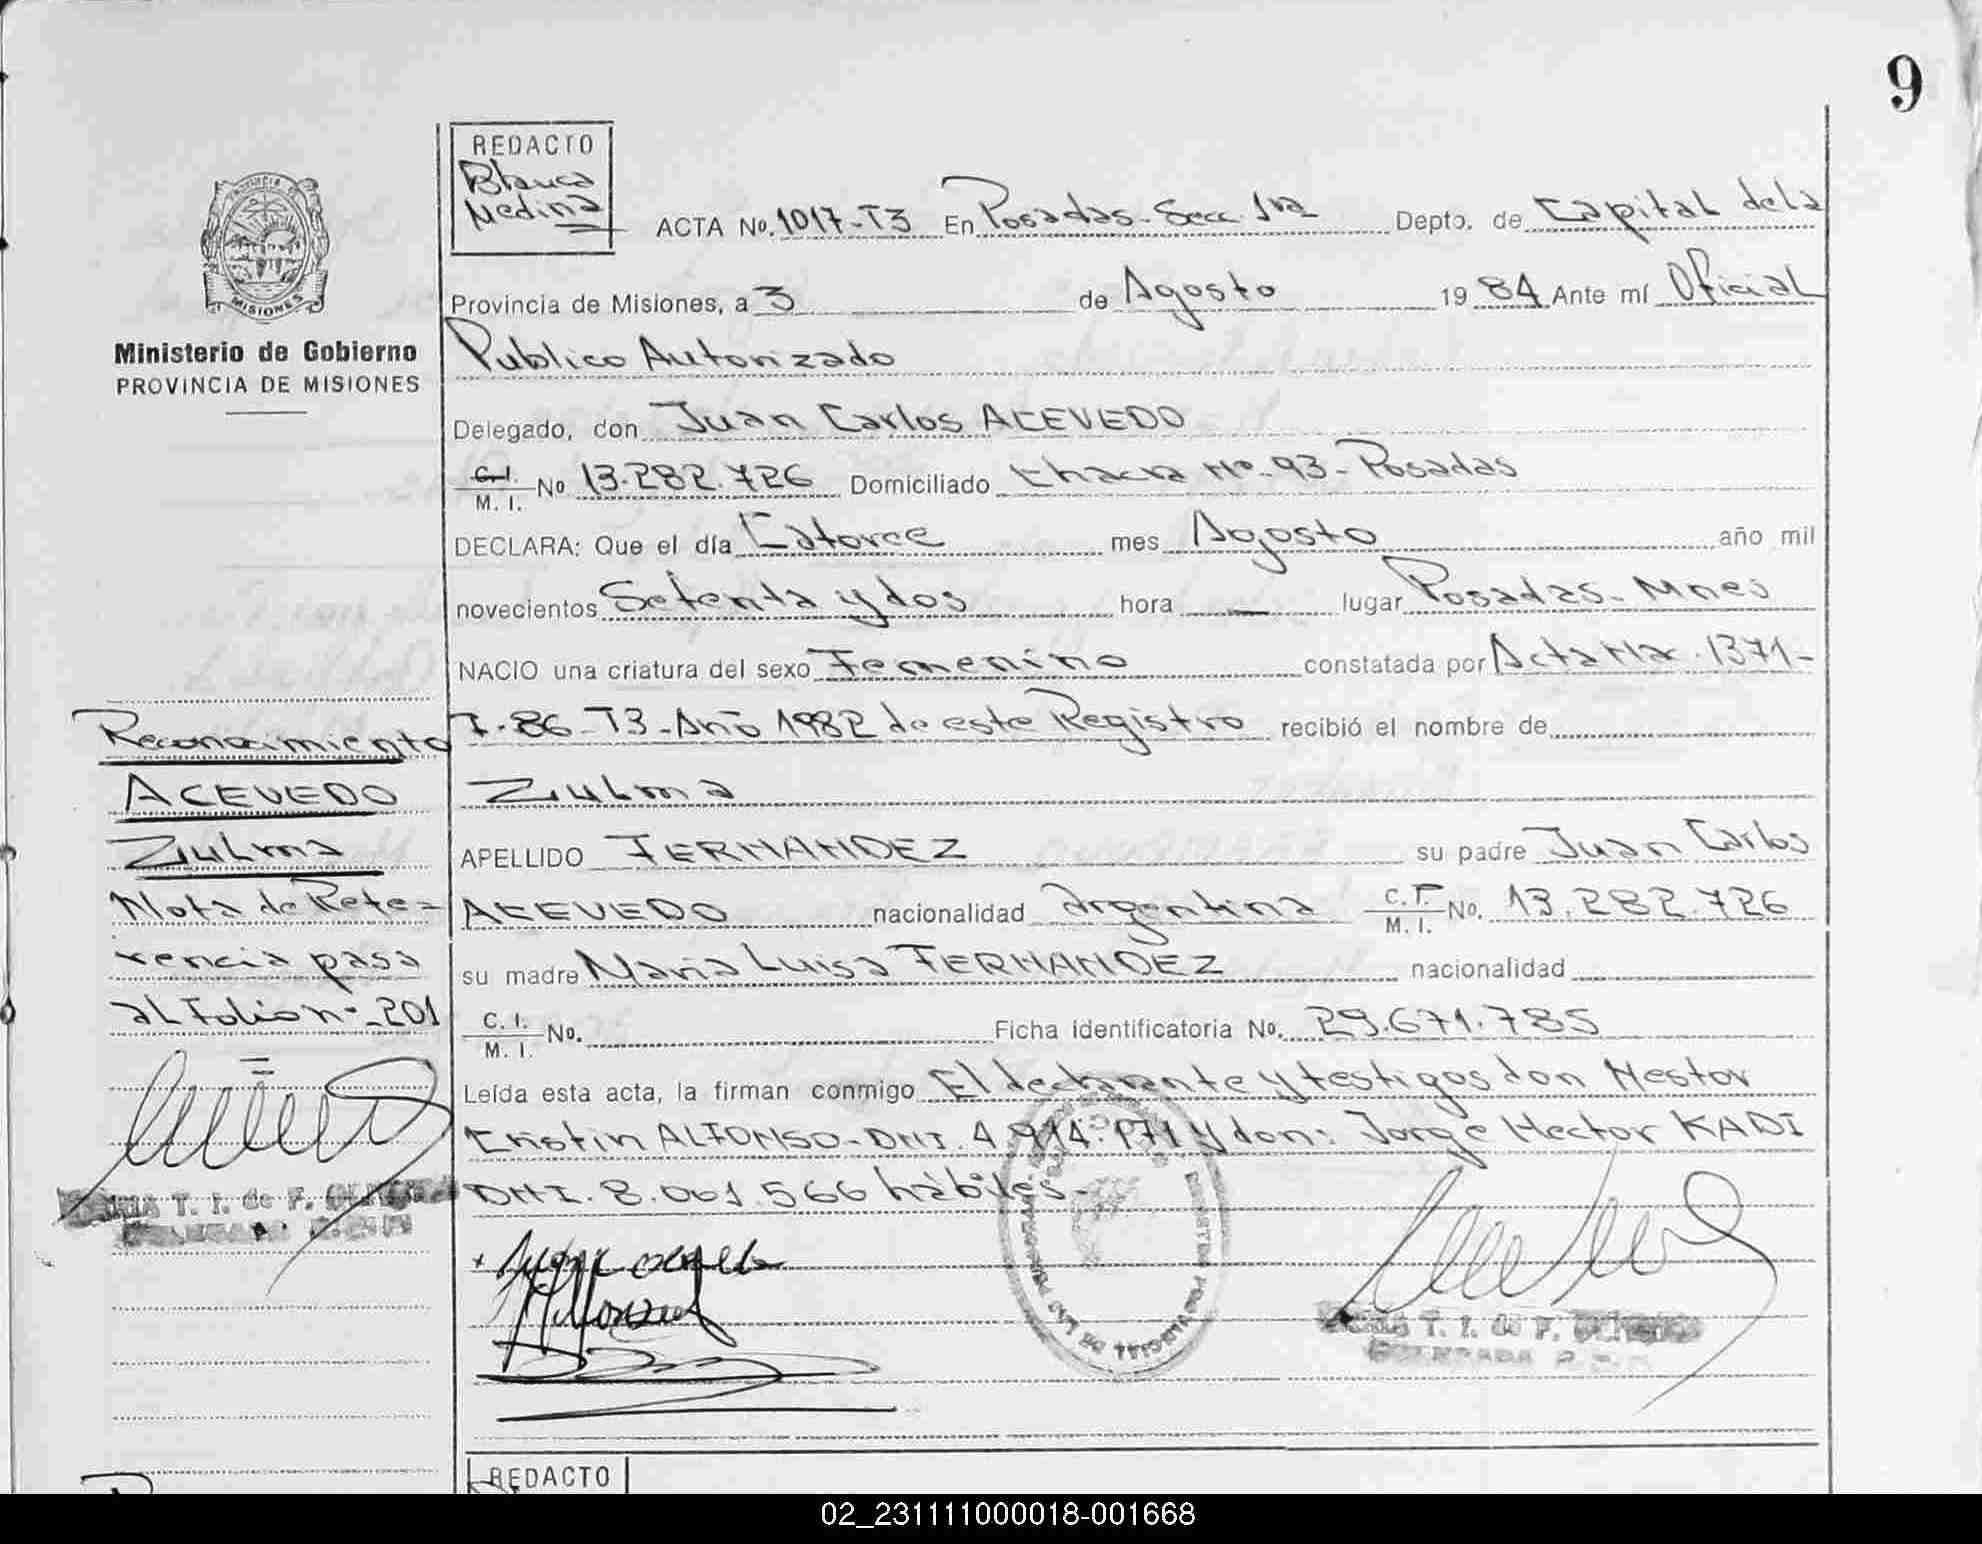 9
REDACTO
Blanca
Medina
ACTA No. 1017-T3 En Posadas-Secc. 1ra Depto. de Capital de la
Provincia de Misiones, a 3 de Agosto 19 84 Ante mí Oficial
Publico Autorizado
Delegado, don Juan Carlos ACEVEDO
C.I. M.I. No 13.282.726 Domiciliado Chacra Nº 93-Posadas
DECLARA: Que el día Catorce mes Agosto año mil
novecientos Setenta y dos hora — lugar Posadas-Mnes
NACIO una criatura del sexo Femenino constatada por Acta Nº 1371-
T-86-T3-Año 1982 de este Registro recibió el nombre de
Zulma
APELLIDO FERNANDEZ su padre Juan Carlos
ACEVEDO nacionalidad argentina C.I. M.I. No. 13.282.726
su madre Maria Luisa FERNANDEZ nacionalidad
C.I. M.I. No. Ficha identificatoria No. 29.671.785
Leída esta acta, la firman conmigo El declarante y testigos don Nestor
Cristin ALFONSO-DNI. 4.914.171 y don: Jorge Hector KADI
DNI. 8.001.566 hábiles-
MISIONES
Ministerio de Gobierno
PROVINCIA DE MISIONES
Reconocimiento
ACEVEDO
Zulma
Nota de Refe=
rencia pasa
al Folio nº 201
T. I. de F.
T. I. de F.
REDACTO
02_231111000018-001668